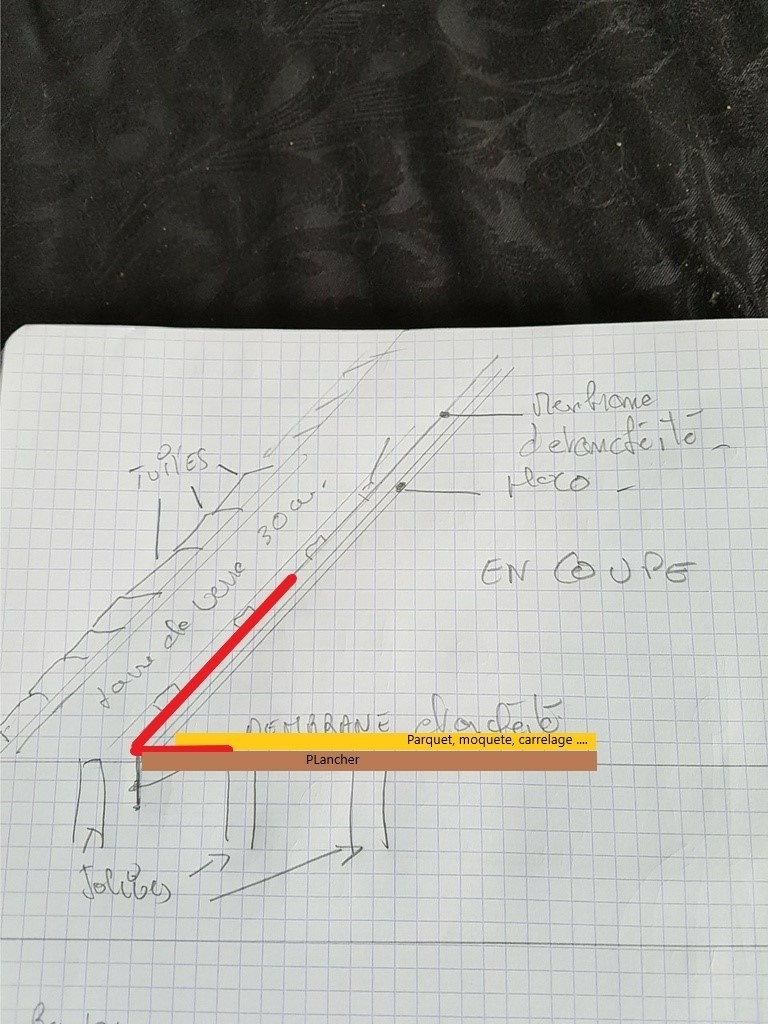 Membrane
d'etanchéité
TUILES
Placo
Laine de verre 30 cm.
EN COUPE
MEMBRANE étanchéité
Parquet, moquete, carrelage ....
PLancher
Solives